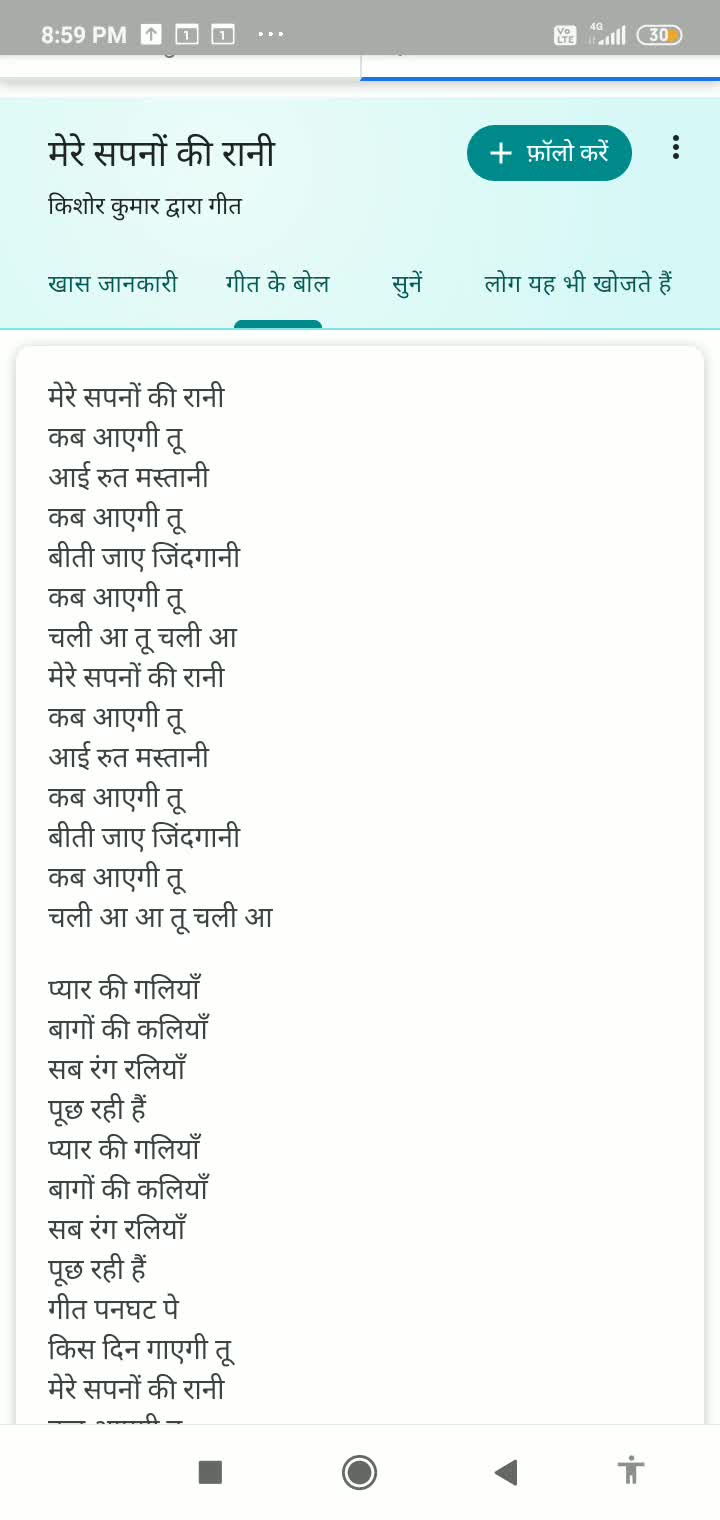 8:59 PM
Vo LTE 4G 30
मेरे सपनों की रानी
+ फ़ॉलो करें
किशोर कुमार द्वारा गीत
खास जानकारी गीत के बोल सुनें लोग यह भी खोजते हैं
मेरे सपनों की रानी
कब आएगी तू
आई रुत मस्तानी
कब आएगी तू
बीती जाए जिंदगानी
कब आएगी तू
चली आ तू चली आ
मेरे सपनों की रानी
कब आएगी तू
आई रुत मस्तानी
कब आएगी तू
बीती जाए जिंदगानी
कब आएगी तू
चली आ आ तू चली आ
प्यार की गलियाँ
बागों की कलियाँ
सब रंग रलियाँ
पूछ रही हैं
प्यार की गलियाँ
बागों की कलियाँ
सब रंग रलियाँ
पूछ रही हैं
गीत पनघट पे
किस दिन गाएगी तू
मेरे सपनों की रानी